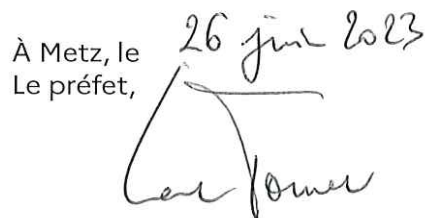 À Metz, le 26 juin 2023
Le préfet,